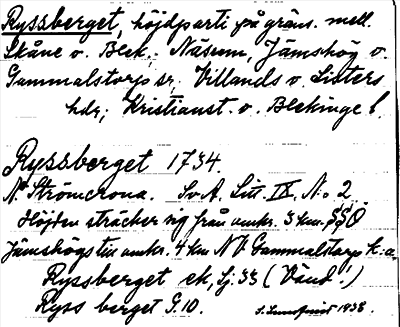 Ryssberget, höjdparti på gräns. mell.
Skåne o. Blek.; Näsum, Jämshög o.
Gammalstorps sr, Villands o. Listers
hdr; Kristianst. o. Blekinge l.
Ryssberget 1734.
N. Strömcrona. SvA, Litt. IX, No 2
Höjden sträcker sig från omkr. 3 km. SSÖ
Jämshögs till omkr. 4 km NV Gammalstorps k:a
Ryssberget ek, Lj: 33 (Vänd!)
Ryss berget G. 10. S. Lundquist 1938.